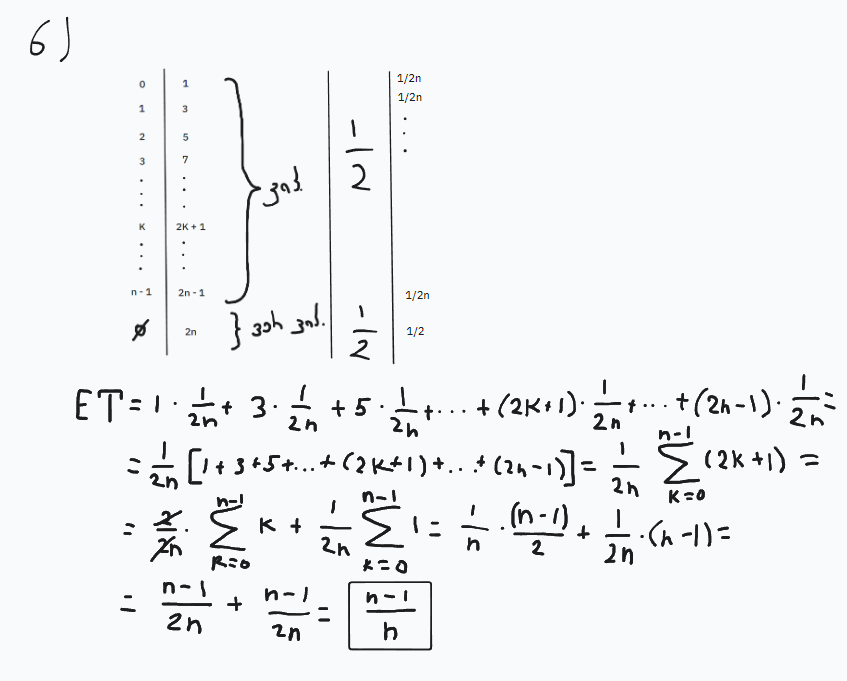 6)
0 1 1/2n
1 3 1/2n
2 5
3 7
ვიპ.
1/2
K 2K+1
n-1 2n-1 1/2n
∅ 2n } ვერ ვიპ. 1/2 1/2
ET = 1 · 1/2n + 3 · 1/2n + 5 · 1/2n + ... + (2K+1) · 1/2n + ... + (2n-1) · 1/2n =
= 1/2n [1 + 3 + 5 + ... + (2K+1) + ... + (2n-1)] = 1/2n ∑_{K=0}^{n-1} (2K+1) =
= 2/2n · ∑_{K=0}^{n-1} K + 1/2n ∑_{K=0}^{n-1} 1 = 1/n · (n-1)/2 + 1/2n · (n-1) =
= n-1/2n + n-1/2n = n-1/n